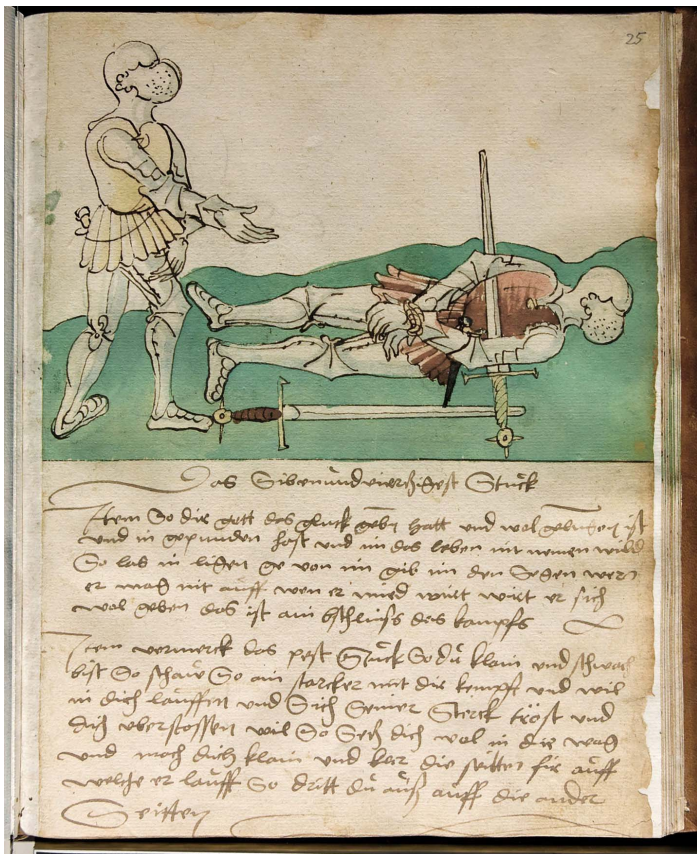 25
Das Sibenundvierzigest Stuck
Item So dir gott das gluck geben hatt und wol gelungen ist
und in gepunden hast und im das leben nit nemen wild
So las in ligen ge von im gib im den Segen wern
er mag nit auff wen er mied wirt er sich
wol geben das ist ain bschluss des kampfs
Item vermerck das pest Stuck So du klain und schwach
bist So schaw So ain starcker mit dir kempft und wil
in dich lauffen und Sich Seiner Sterck tröst und
dich uberstossen wil So Setz dich wol in die wag
und mach dich klain und ker die seitten für auff
welche er lauff So dritt du auß auff die ander
Seitten